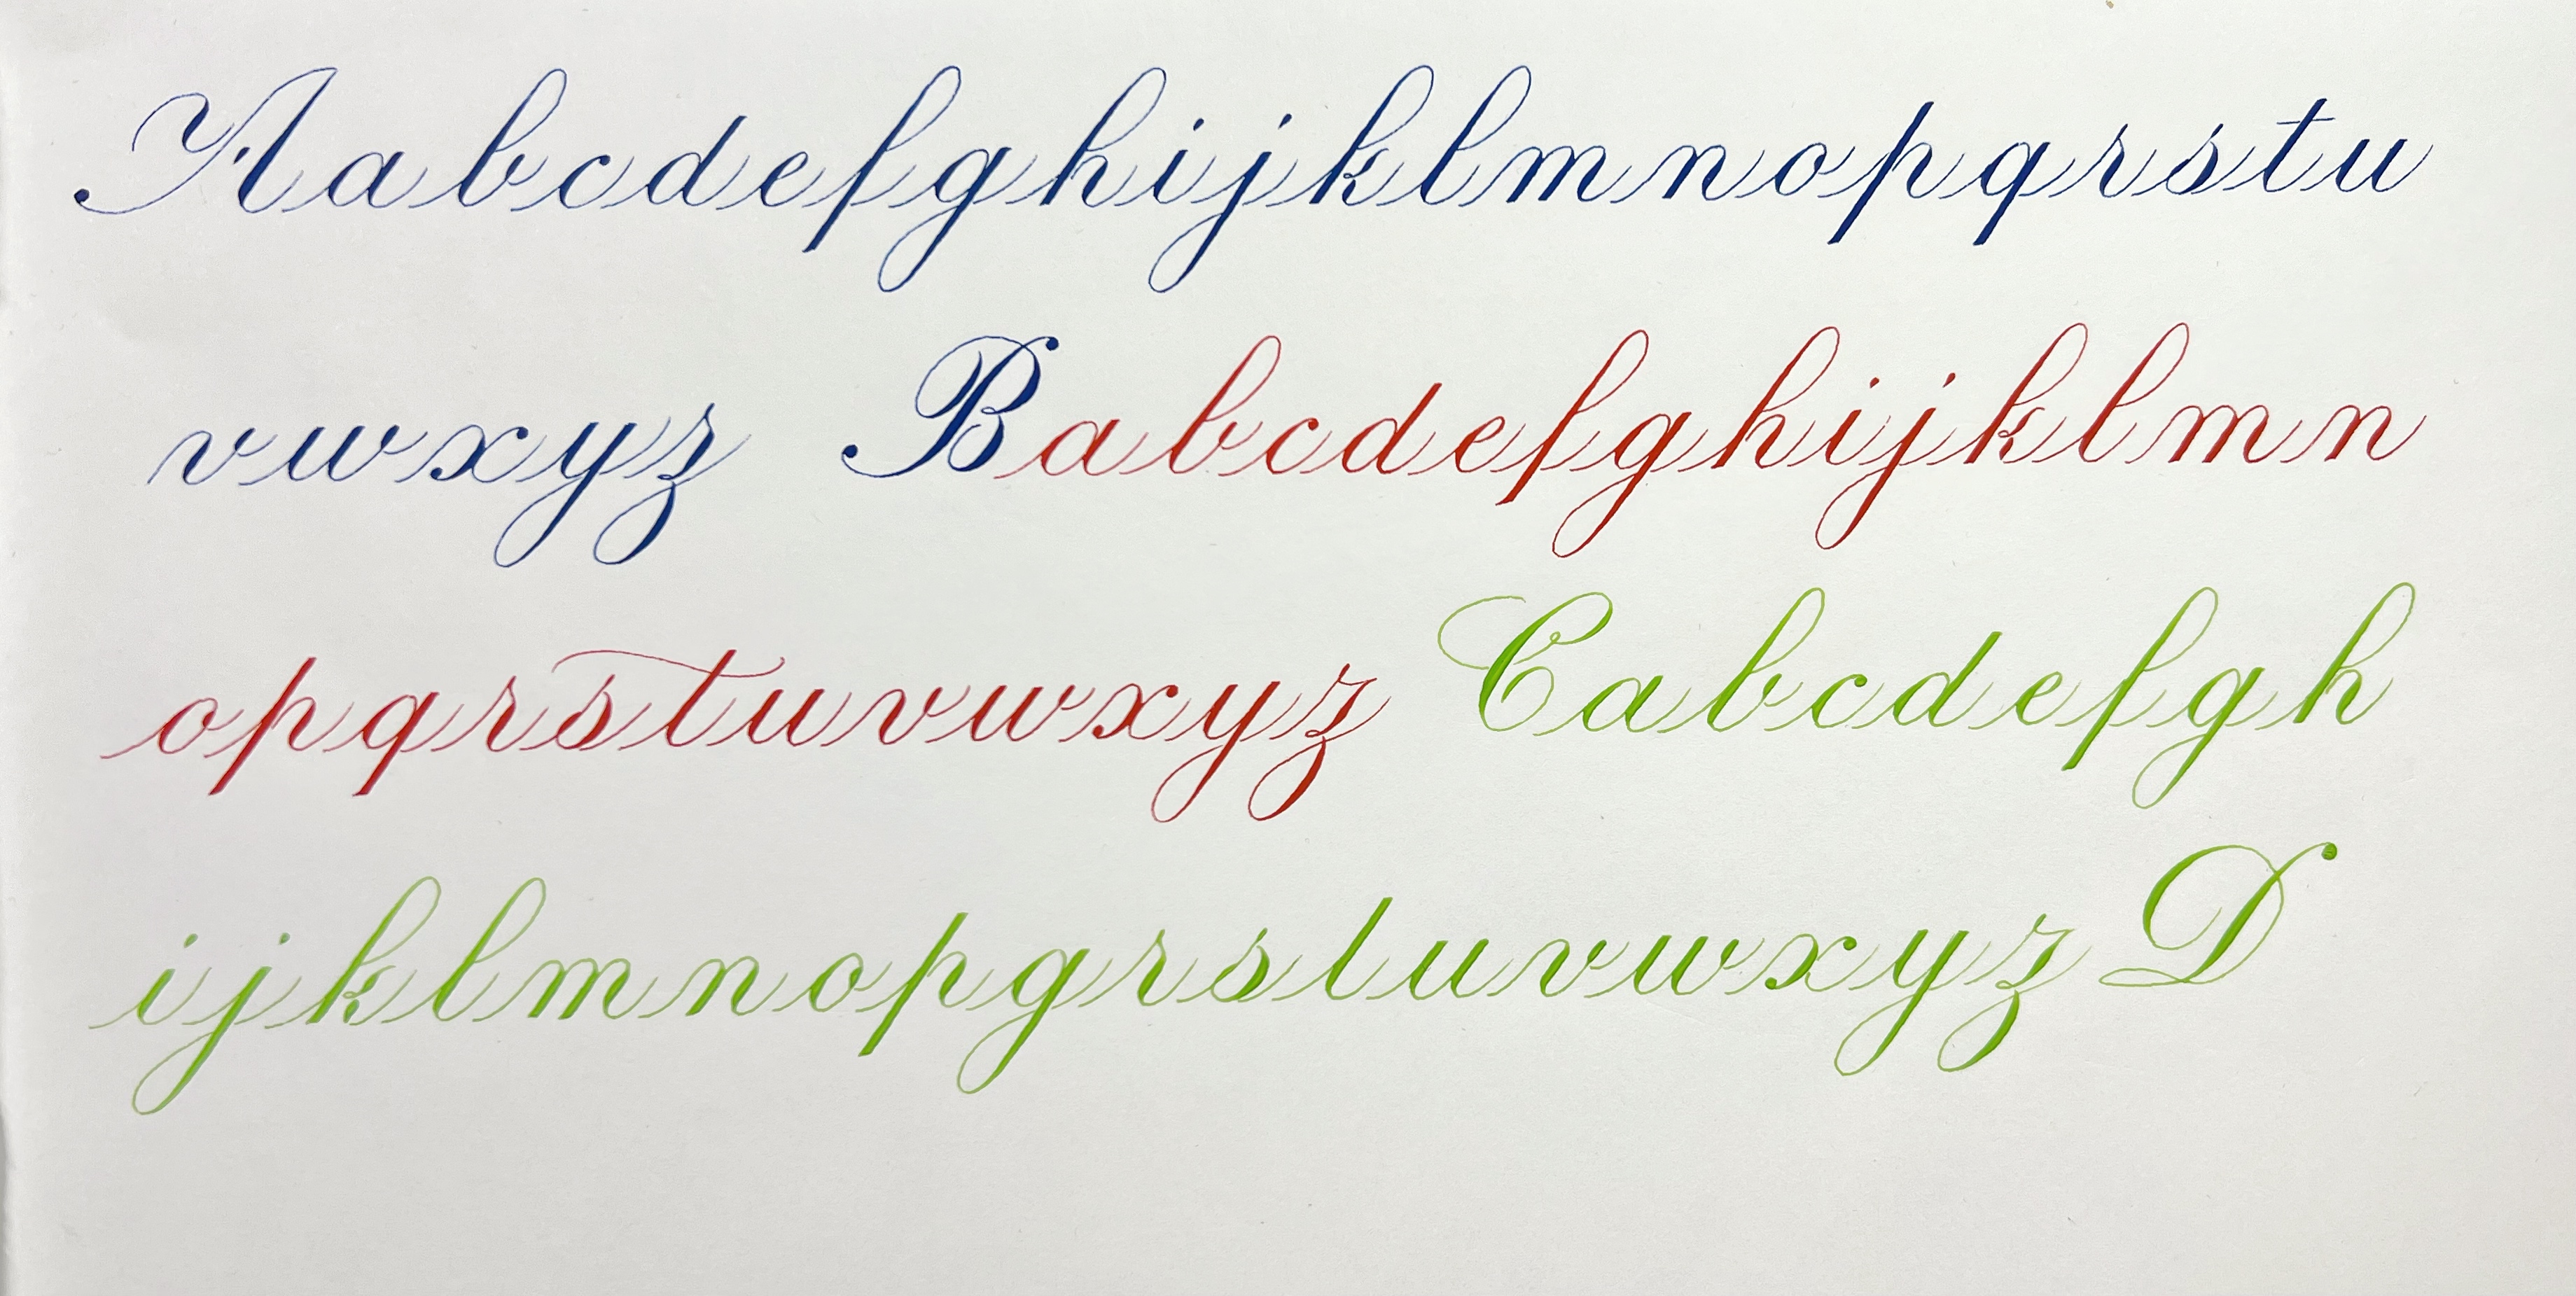 Aabcdefghijklmnopqrstu
vwxyz Babcdefghijklmn
opqrstuvwxyz Cabcdefgh
ijklmnopgrstuvwxyz D